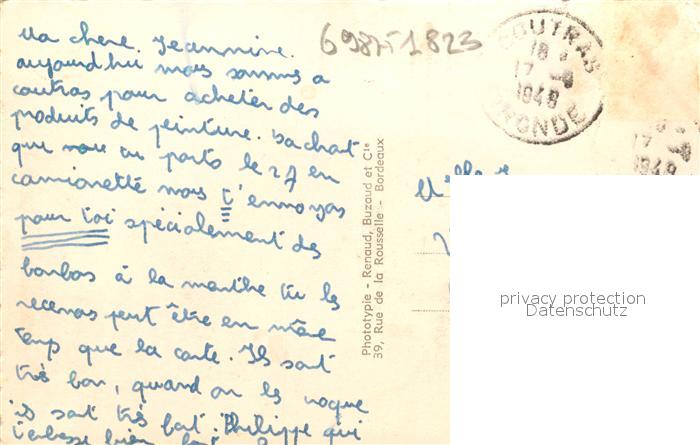 Ma chere. Jeannine.
aujourd'hui nous sommes a
coutras pour acheter des
produits de peinture. Sachant
que tu parts le 27 en
camionette nous t'envoyas
pour toi spécialement des
bonbos à la menthe tu les
recevras peut être en même
temp que la carte. Ils sont
très bon, quand on les croque
ils sont très fort. Philippe qui
t'enbrasse bien fort
69875 1823
COUTRAS
18
17 - 8
1948
GIRONDE
17
1948
Phototypie - Renaud, Buzaud et Cie
39, Rue de la Rousselle - Bordeaux
privacy protection
Datenschutz